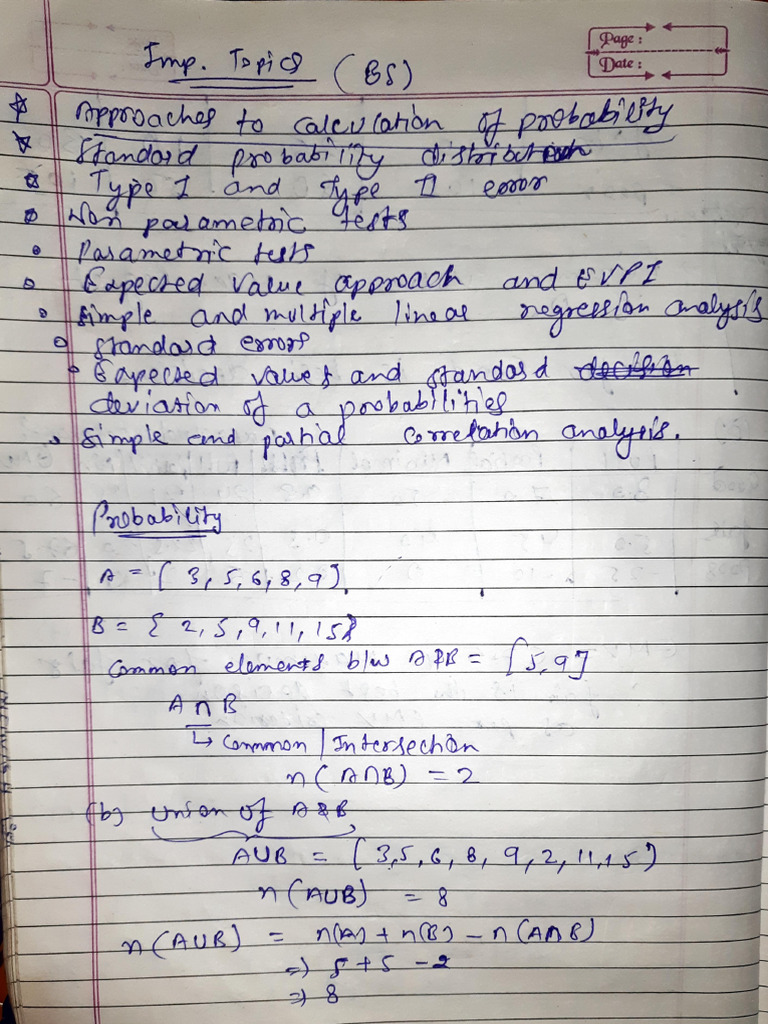 Page :
Date :
Imp. Topics (BS)
Approaches to calculation of probability
Standard probability distribution
Type I and Type II error
Non parametric tests
Parametric tests
Expected value approach and EVPI
Simple and multiple linear regression analysis
Standard errors
Expected values and standard decision
deviation of a probabilities
Simple and partial correlation analysis.
Probability
A = [ 3, 5, 6, 8, 9 ]
B = { 2, 5, 9, 11, 15 }
Common elements b/w A & B = [5, 9]
A ∩ B
↳ Common / Intersection
n(A∩B) = 2
(b) Union of A & B
A∪B = [ 3, 5, 6, 8, 9, 2, 11, 15 )
n(A∪B) = 8
n(A∪B) = n(A) + n(B) - n(A∩B)
⇒ 5 + 5 - 2
⇒ 8